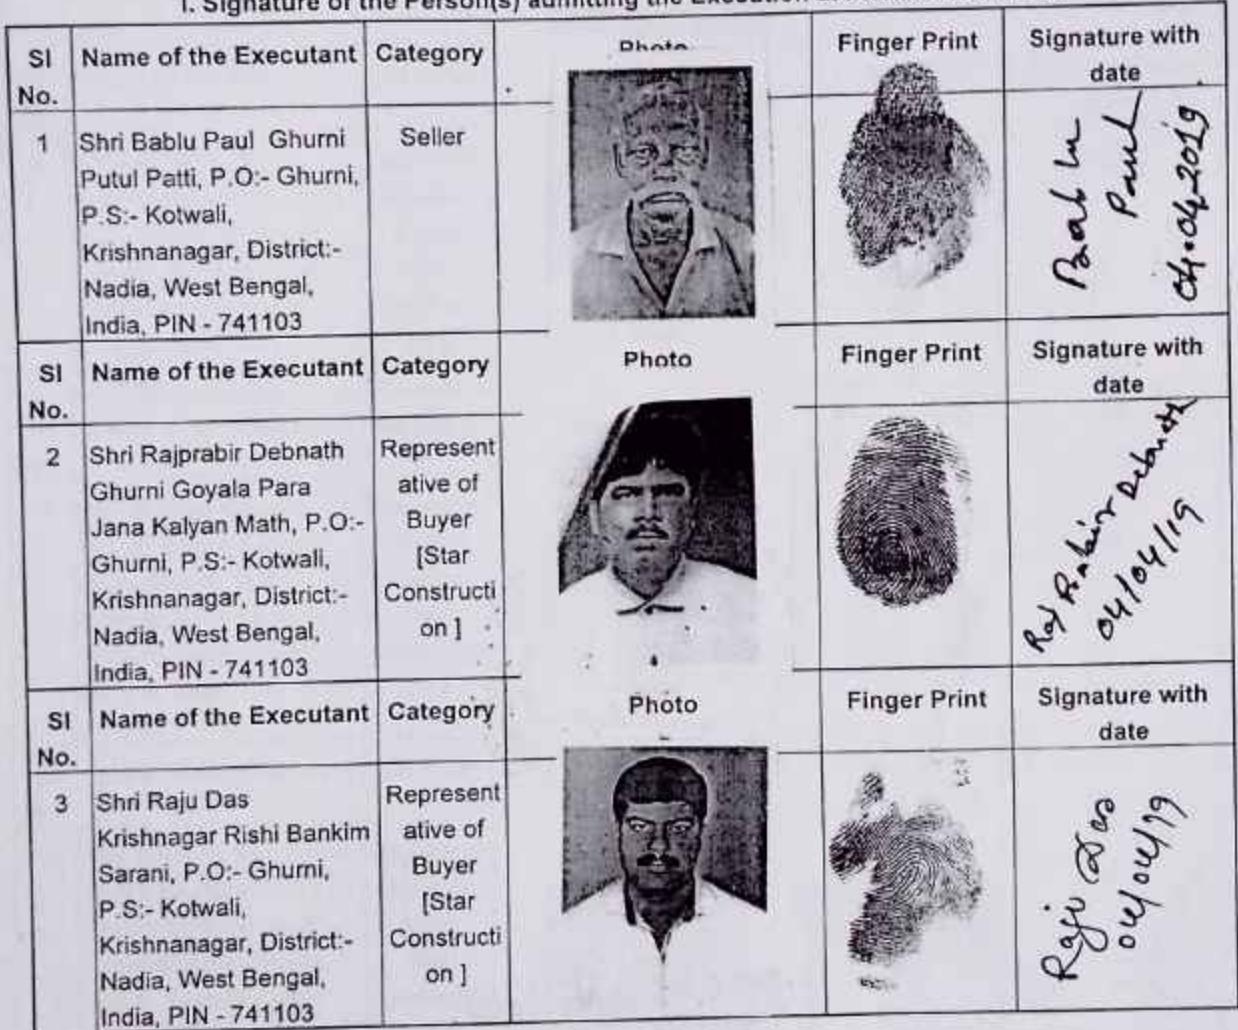 I. Signature of the Person(s) admitting the Execution
Sl No. Name of the Executant Category Photo Finger Print Signature with date
1 Shri Bablu Paul Ghurni Putul Patti, P.O:- Ghurni, P.S:- Kotwali, Krishnanagar, District:- Nadia, West Bengal, India, PIN - 741103
Seller
Bablu Paul 04.04.2019
Sl No. Name of the Executant Category Photo Finger Print Signature with date
2 Shri Rajprabir Debnath Ghurni Goyala Para Jana Kalyan Math, P.O:- Ghurni, P.S:- Kotwali, Krishnanagar, District:- Nadia, West Bengal, India, PIN - 741103
Representative of Buyer [Star Construction ]
Raj Prabir Debnath 04/04/19
Sl No. Name of the Executant Category Photo Finger Print Signature with date
3 Shri Raju Das Krishnagar Rishi Bankim Sarani, P.O:- Ghurni, P.S:- Kotwali, Krishnanagar, District:- Nadia, West Bengal, India, PIN - 741103
Representative of Buyer [Star Construction ]
Raju Das 04/04/19